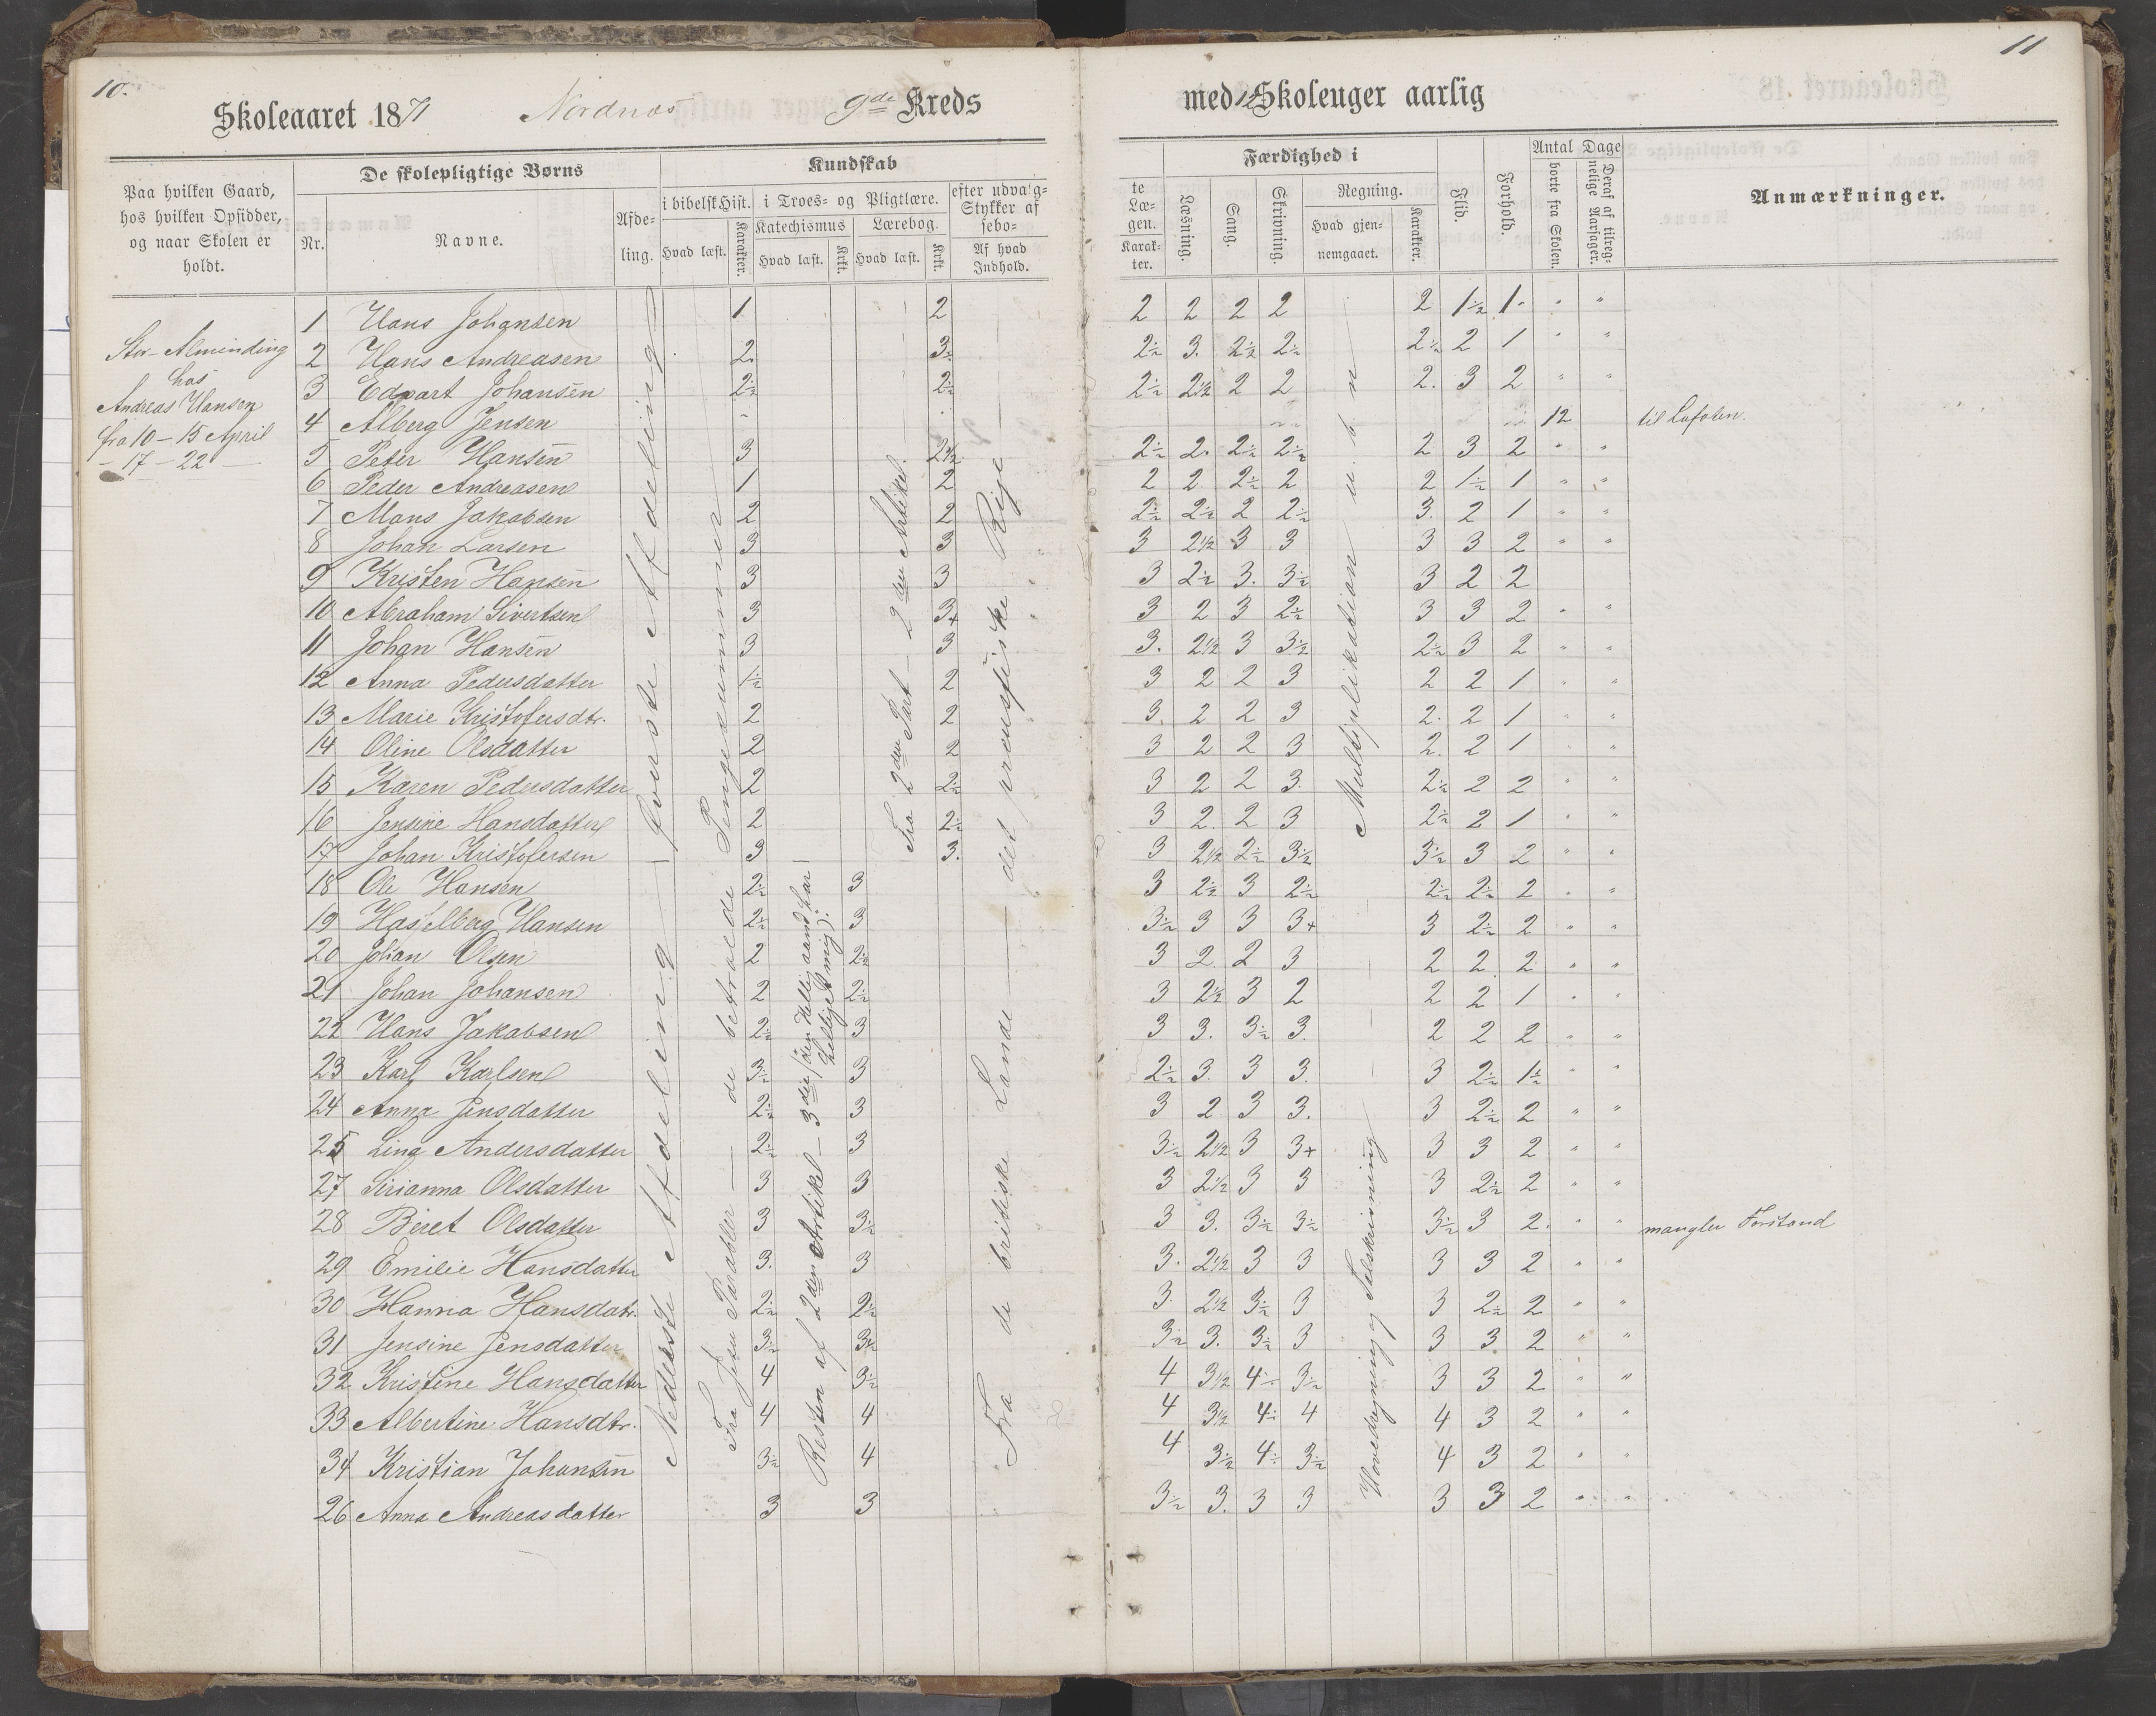 10.
11
Skoleaaret 1871 Nordnæs 9de Kreds
med 12 Skoleuger aarlig
Paa hvilken Gaard, hos hvilken Opsidder, og naar Skolen er holdt.
De skolepligtige Børns
Nr.
Navne.
Afdeling.
Kundskab
i bibelsk Hist.
Hvad læst.
Karakter.
i Troes- og Pligtlære.
Katechismus
Hvad læst.
Krkt.
Lærebog.
Hvad læst.
Krkt.
efter udvalg=
Stykker af
sebo=
Af hvad Indhold.
te Læ-gen.
Karak-ter.
Færdighed i
Læsning.
Sang.
Skrivning.
Regning.
Hvad gjen-nemgaaet.
Karakter.
Flid.
Forhold.
Antal Dage
borte fra Skolen.
Deraf af tilreg-nelige Aarsager.
Anmærkninger.
Stor-Alminding
hos
Andreas Hansen
fra 10 – 15 April
– 17 – 22 —
1 Hans Johansen 1 2 2 2 2 2 2 1½ 1
2 Hans Andreasen 2. 3½ 2½ 3. 2½ 2½ 2½ 2 1
3 Edvart Johansen 2½ 2½ 2½ 2½ 2 2 2. 3 2
4 Alberg Jensen 12 til Lofoten.
5 Peter Hansen 3 2½ 2½ 2. 2½ 2½ 2 3 2
6 Peder Andreasen 1 2 2 2 2½ 2 2 1½ 1
7 Mons Jakobsen 2 2 2½ 2½ 2 2½ 3. 2 1
8 Johan Larsen 3 3 3 2½ 3 3 3 3 2
9 Kristen Hansen 3 3 3 2½ 3. 3½ 3 2 2
10 Abraham Sivertsen 3 3+ 3 2 3 2½ 3 3 2
11 Johan Hansen 3 3 3. 2½ 3 3½ 2½ 3 2
12 Anna Pedersdatter 1½ 2 3 2 2 3 2 2 1
13 Marie Kristofersdtr. 2 2 3. 2 2 3 2. 2 1
14 Oline Olsdatter 2 2 3 2 2 3 2. 2 1
15 Karen Pedersdatter 2 2½ 3 2 2 3. 2½ 2 2
16 Jensine Hansdatter 2 2½ 3 2. 2 3 2½ 2 1
17 Johan Kristofersen 3 3. 3 2½ 2½ 3½ 3½ 3 2
18 Ole Hansen 2½ 3 3 2½ 3 2½ 2½ 2½ 2
19 Hasselberg Hansen 2½ 3 3½ 3 3 3+ 3 2½ 2
20 Johan Olsen 2 2½ 3 2. 2 3 2 2. 2
21 Johan Johansen 2 2½ 3 2½ 3 2 2 2 1
22 Hans Jakobsen 2½ 3 3 3. 3½ 3. 2 2 2
23 Karl Karlsen 3½ 3 2½ 3. 3 3. 3 2½ 1½
24 Anna Jensdatter 2½ 3 3 2 3 3. 3 2½ 2
25 Lina Andersdatter 2½ 3 3½ 2½ 3 3+ 3 3 2
27 Sirianna Olsdatter 3 3 3 2½ 3 3 3 2½ 2
28 Beret Olsdatter 3 3½ 3 3. 3½ 3½ 3½ 3 2. mangler Forstand
29 Emilie Hansdatter 3. 3 3. 2½ 3 3 3 3 2
30 Hanna Hansdatr. 2½ 2½ 3. 2½ 3½ 3 3 2½ 2
31 Jensine Jensdatter 3½ 3½ 3½ 3. 3½ 3 3 3. 2
32 Kristine Hansdatter 4 3½ 4 3½ 4÷ 3½ 3 3 2
33 Albertine Hansdtr. 4 4 4 3½ 4÷ 4 4 3 2
34 Kristian Johansen 3½ 4 4 3½ 4÷ 3½ 4 3 2
26 Anna Andreasdatter 3 3 3½ 3. 3 3 3 3 2
øverste Afdeling
Nederste Afdeling
Fra Jesu Parabler — de betroede Penge
Resten af 2den Artikel – 3die (den Hellig aand har helliget mig).
Fra 2den Part – 2den Artikel.
Fra de britiske Lande — det preussiske Rige
Multiplikation u. b. n.
Hovedregning og Talskrivning